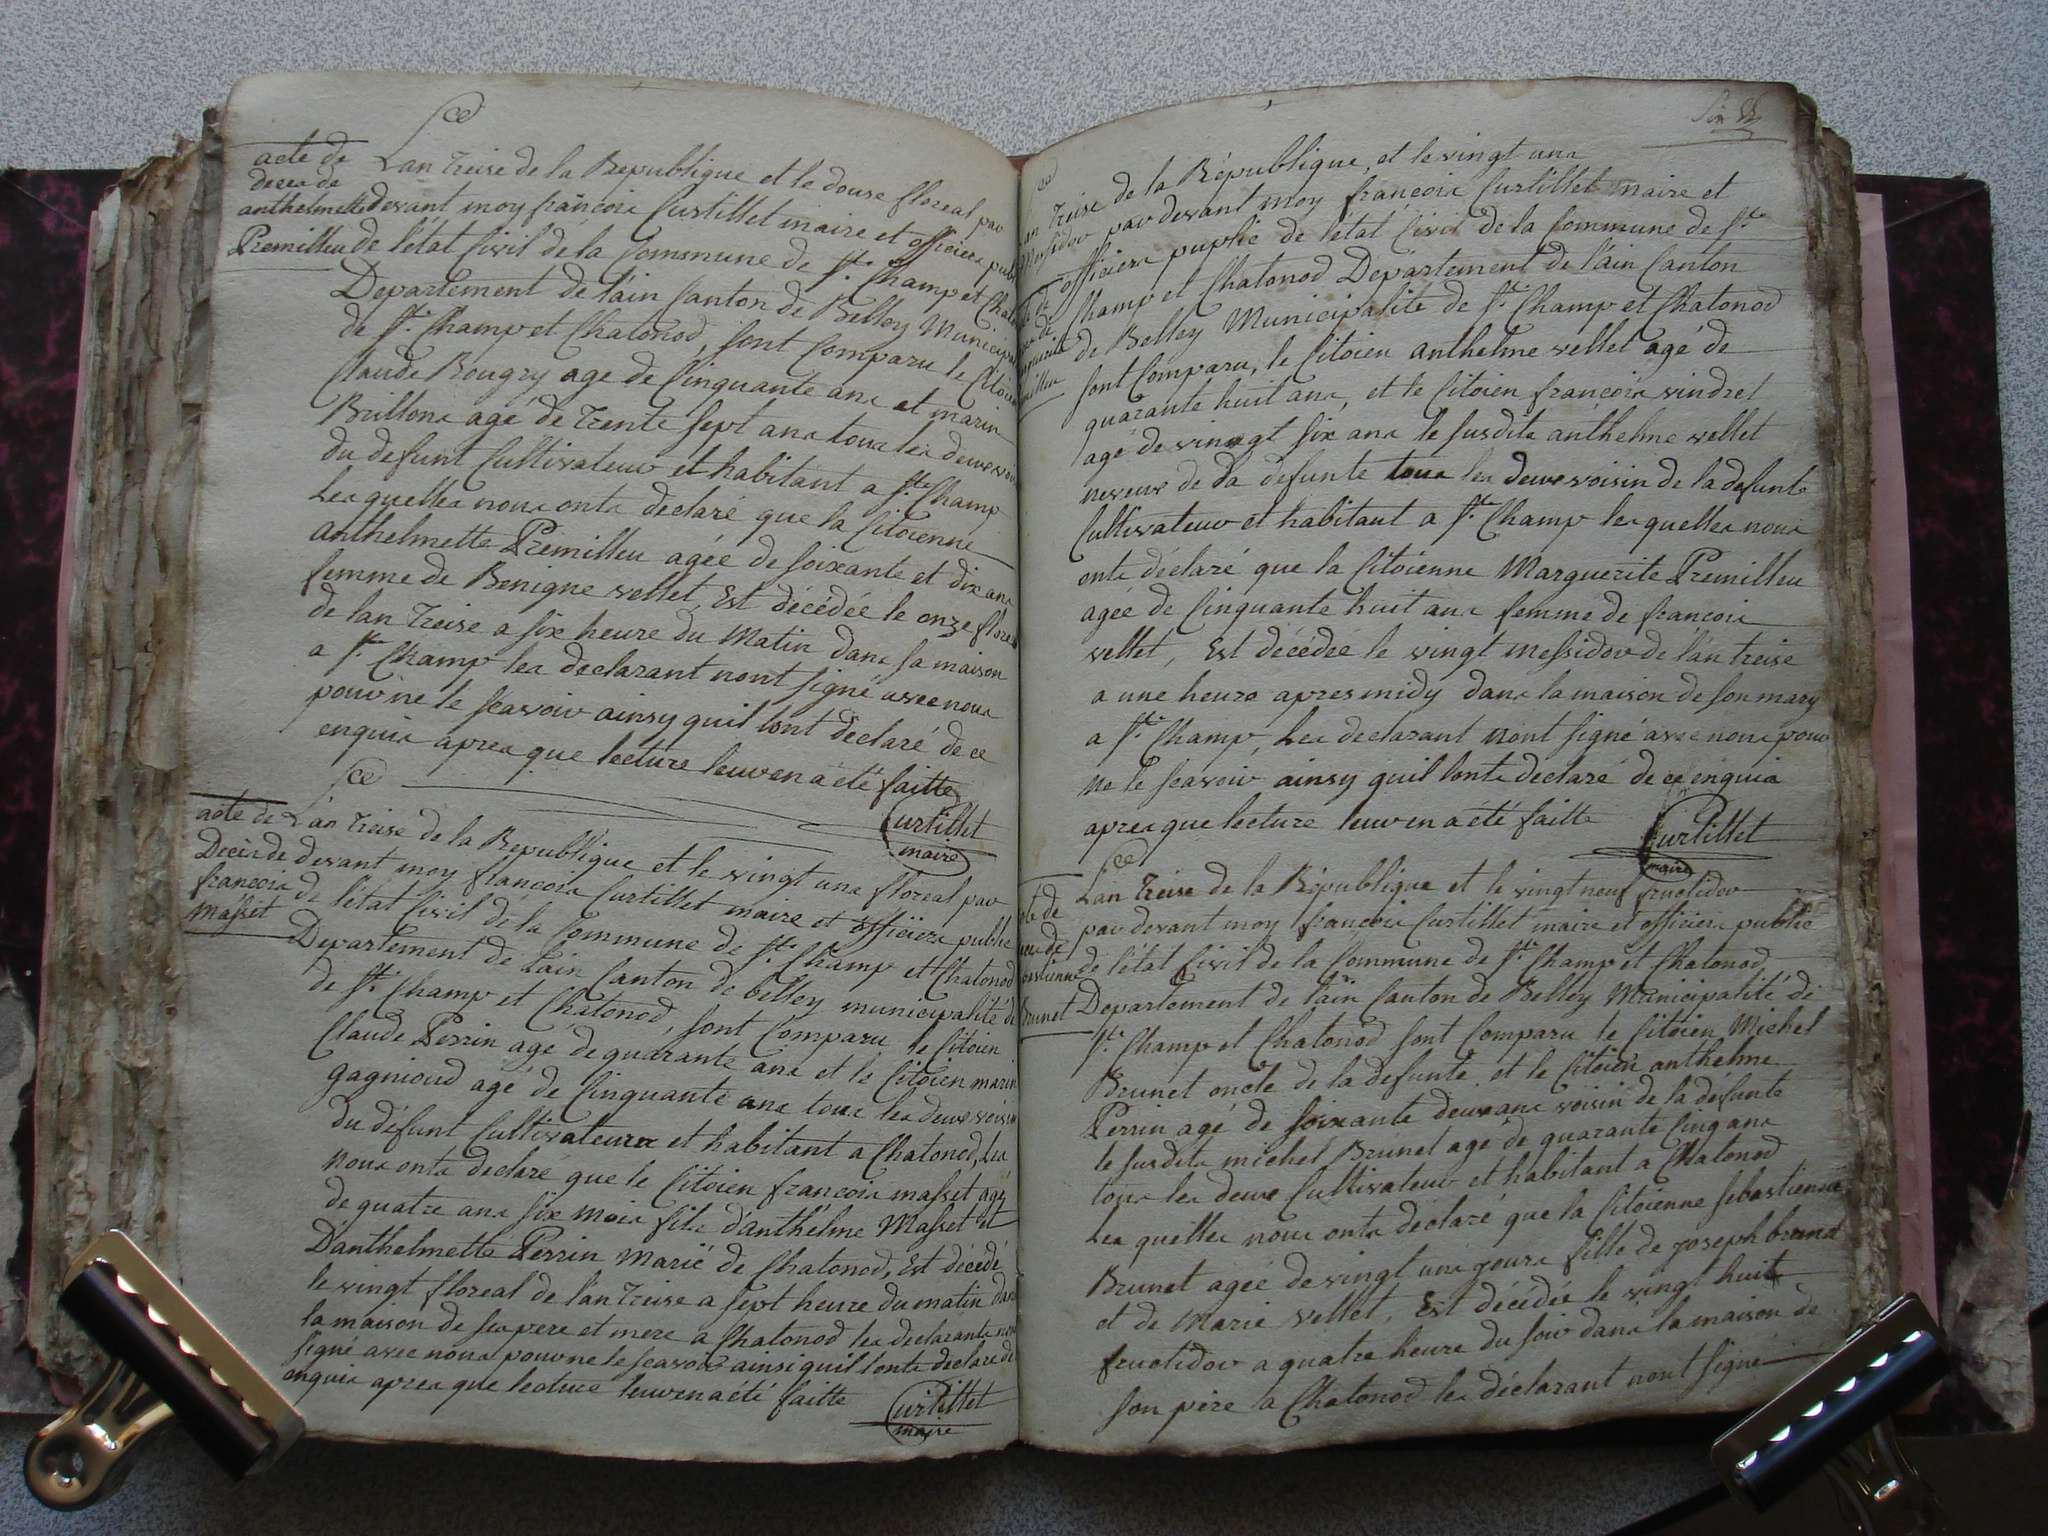 acte de
deces de
anthelmette
Premilleu
Lan treise de la Republique et le douse floreal par
devant moy françois Curtillet maire et officiers publi
de létat Civil de la Commune de St. Champ et Chato
Departement de lain Canton de Belley Municipal
de St. Champ et Chatonod, sont Comparu le Citoien
Claude Bougry age de Cinquante ans et marin
Brillons agé de trente sept ans tous les deux vois
du defunt Cultivateur et habitant a St. Champ
Les quelles nous onts declaré que la Citoienne
anthelmette Premilleu agée de soixante et dix ans
femme de Benigne vellet, Est décédée le onze flore
de lan treise a six heure du Matin dans sa maison
a St. Champ les declarant nont signé avec nous
pour ne le scavoir ainsy quil lont declaré de ce
enquis apres que lecture leur en a été faitte
Curtillet
maire
acte de
Deces de
francois
Masset
Lan treise de la Republique et le vingt uns floreal par
devant moy françois Curtillet maire et officiers publie
de létat Civil de la Commune de St. Champ et Chatonod
Departement de lain Canton de belley municipalité de
de St. Champ et Chatonod, sont Comparu le Citoien
Claude Perrin agé de quarante ans et le Citoien marin
gagnioud agé de Cinquante ans tous les deux voisin
du défunt Cultivateurs et habitant a Chatonod, Les
nous onts declaré que le Citoien françois masset agé
de quatre ans six mois fils d'anthelme Masset et
D'anthelmette Perrin Marié de Chatonod, Est décédé
le vingt floreal de lan treise a sept heure du matin dans
la maison de ses pere et mere a Chatonod les declarants non
signé avec nous pour ne le scavoir ainsi quil lonts declaré de
enquis apres que lecture leur en a été faitte
Curtillet
maire
an treise de la République, et le vingt uns
Messidor par devant moy françois Curtillet maire et
officiers puplie de létat Civil de la Commune de St.
Champ et Chatonod Departement de lain Canton
de Belley Municipalité de St. Champ et Chatonod
sont Comparu, le Citoien anthelme vellet agé de
quarante huit ans, et le Citoien françois vindret
agé de vinegt six ans le susdits anthelme vellet
neveux de da defunte tous les deux voisin de la defunte
Cultivateur et habitant a St. Champ les quelles nous
onts déclaré que la Citoienne Marguerite Premilleu
agée de Cinquante huit ans femme de françois
vellet, Est décédée le vingt Messidor de lan treise
a une heure apres midy dans la maison de son mary
a St. Champ, Les declarant nont signé avec nous pour
ne le scavoir ainsy quil lonts declaré de ce enquis
apres que lecture leur en a été faitte
Curtillet
maire
Lan treise de la République et le vingt neuf fructidor
par devant moy françois Curtillet maire et officiers publié
de létat Civil de la Commune de St. Champ et Chatonod
Departement de lain Canton de Belley Municipalité de
St. Champ et Chatonod sont Comparu le Citoien Michel
Brunet oncle de la defunte et le Citoien anthelme
Perrin agé de soixante deux ans voisin de la défunte
le susdits michel Brunet agé de quarante Cinq ans
tous les deux Cultivateur et habitant a Chatonod
Les quelles nous onts declaré que la Citoienne sebastienne
Brunet agée de vingt uns jours fille de joseph brunet
et de Marie vellet, Est décédée le vingt huit
fructidor a quatre heure du soir dans la maison de
son père a Chatonod les déclarant nont signé